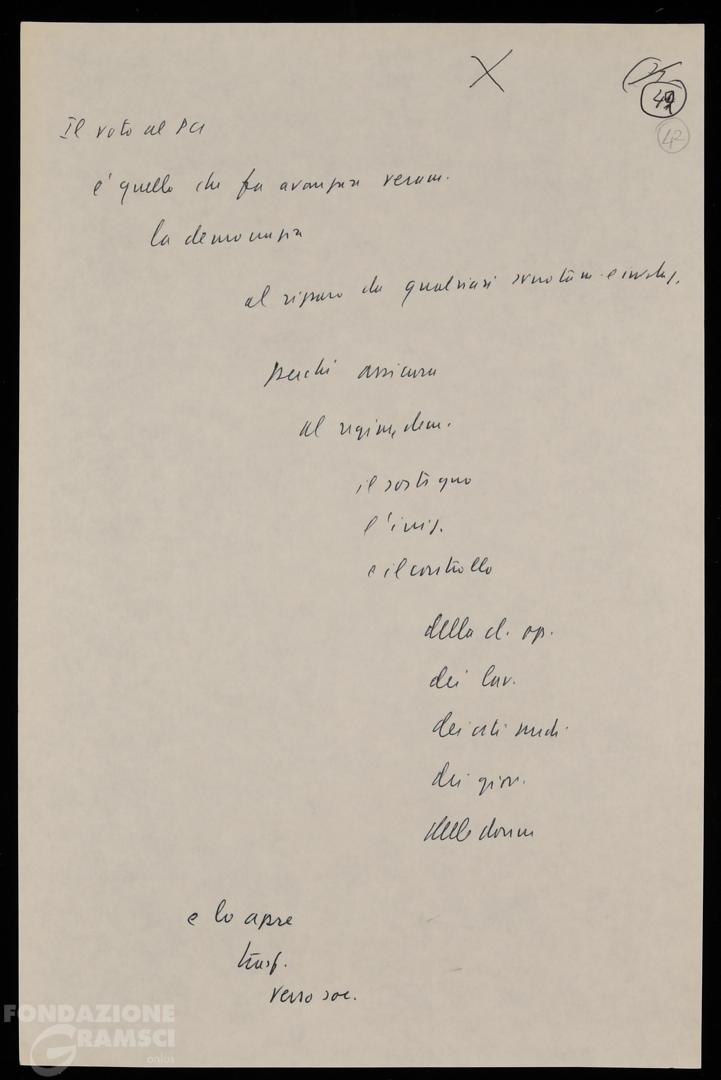 X
42
42
Il voto al PCI
è quello che fa avanzare veram.
la democrazia
al riparo da qualsiasi svuotam. e involuz.
perché assicura
al regime dem.
il sostegno
l'iniz.
e il controllo
della cl. op.
dei lav.
dei ceti medi
dei giov.
delle donne
e lo apre
trasf.
verso soc.
FONDAZIONE
GRAMSCI
onlus